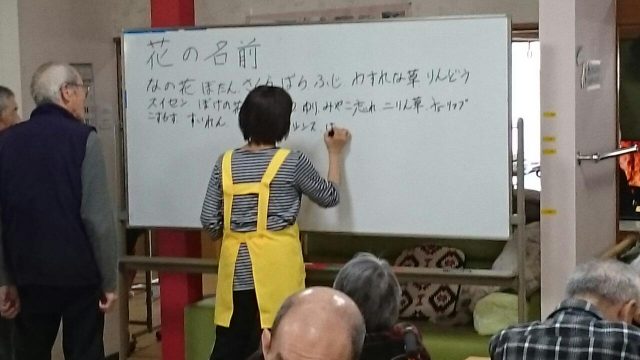 花の名前
なの花 ぼたん さくら ばら ふじ わすれな草 りんどう
スイセン ぼけの花 ゆり みやこ忘れ 二りん草 チューリップ
こすもす すいれん